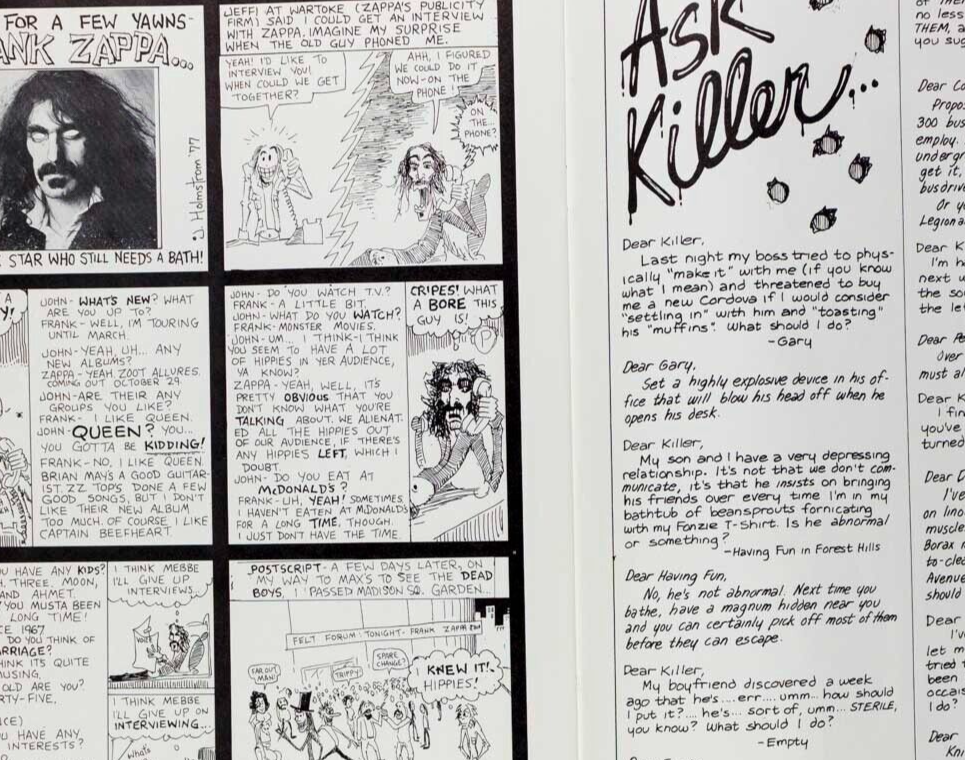 FOR A FEW YAWNS-
ANK ZAPPA...
J. Holmstrom '77
STAR WHO STILL NEEDS A BATH!
JEFF) AT WARTOKE (ZAPPA'S PUBLICITY
FIRM) SAID I COULD GET AN INTERVIEW
WITH ZAPPA. IMAGINE MY SURPRISE
WHEN THE OLD GUY PHONED ME.
YEAH! I'D LIKE TO
INTERVIEW YOU!
WHEN COULD WE GET
TOGETHER?
AHH, I FIGURED
WE COULD DO IT
NOW-ON THE
PHONE!
ON
THE...
PHONE?
A
Y!
JOHN- WHAT'S NEW? WHAT
ARE YOU UP TO?
FRANK- WELL, I'M TOURING
UNTIL MARCH.
JOHN-YEAH, UH... ANY
NEW ALBUMS?
ZAPPA-YEAH. ZOOT ALLURES.
COMING OUT OCTOBER 29.
JOHN-ARE THEIR ANY
GROUPS YOU LIKE?
FRANK- I LIKE QUEEN.
JOHN-QUEEN? YOU...
YOU GOTTA BE KIDDING!
FRANK-NO, I LIKE QUEEN.
BRIAN MAY'S A GOOD GUITAR-
IST. ZZ TOPS DONE A FEW
GOOD SONGS, BUT I DON'T
LIKE THEIR NEW ALBUM
TOO MUCH. OF COURSE I LIKE
CAPTAIN BEEFHEART.
JOHN- DO YOU WATCH T.V.?
FRANK- A LITTLE BIT.
JOHN- WHAT DO YOU WATCH?
FRANK-MONSTER MOVIES.
JOHN-UM... I THINK-I THINK
YOU SEEM TO HAVE A LOT
OF HIPPIES IN YER AUDIENCE,
YA KNOW?
ZAPPA-YEAH, WELL, IT'S
PRETTY OBVIOUS THAT YOU
DON'T KNOW WHAT YOU'RE
TALKING ABOUT. WE ALIENAT-
ED ALL THE HIPPIES OUT
OF OUR AUDIENCE, IF THERE'S
ANY HIPPIES LEFT, WHICH I
DOUBT.
JOHN- DO YOU EAT AT
McDONALD'S?
FRANK-UH, YEAH! SOMETIMES.
I HAVEN'T EATEN AT McDONALD'S
FOR A LONG TIME, THOUGH.
I JUST DON'T HAVE THE TIME.
CRIPES! WHAT
A BORE THIS
GUY IS!
U HAVE ANY KIDS?
H. THREE. MOON,
AND AHMET.
YOU MUSTA BEEN
LONG TIME!
CE 1967
DO YOU THINK OF
ARRIAGE?
HINK ITS QUITE
MUSING.
OLD ARE YOU?
RTY-FIVE.
CE)
U HAVE ANY
INTERESTS?
I THINK MEBBE
I'LL GIVE UP
INTERVIEWS...
I THINK MEBBE
I'LL GIVE UP ON
INTERVIEWING...
What's
POSTSCRIPT- A FEW DAYS LATER, ON
MY WAY TO MAX'S TO SEE THE DEAD
BOYS, I PASSED MADISON SQ. GARDEN...
FELT FORUM: TONIGHT- FRANK ZAPPA
FAR OUT
MAN!
TRIPPY
SPARE
CHANGE?
I KNEW IT!
HIPPIES!
Ask
Killer...
Dear Killer,
Last night my boss tried to phys-
ically "make it" with me (if you know
what I mean) and threatened to buy
me a new Cordova if I would consider
"settling in" with him and "toasting"
his "muffins". What should I do?
-Gary
Dear Gary,
Set a highly explosive device in his of-
fice that will blow his head off when he
opens his desk.
Dear Killer,
My son and I have a very depressing
relationship. It's not that we don't com-
municate, it's that he insists on bringing
his friends over every time I'm in my
bathtub of beansprouts fornicating
with my Fonzie T-Shirt. Is he abnormal
or something?
-Having Fun in Forest Hills
Dear Having Fun,
No, he's not abnormal. Next time you
bathe, have a magnum hidden near you
and you can certainly pick off most of them
before they can escape.
Dear Killer,
My boyfriend discovered a week
ago that he's....err.... umm... how should
I put it?.... he's... sort of, umm... STERILE,
you know? What should I do?
-Empty
no less
THEM, a
you sug
Dear Co
Propos
300 bus
employ.
undergr
get it,
busdrive
Or yo
Legiona
Dear K
I'm h
next w
the so
the let
Dear Pe
Over
must al
Dear K
I fin
you've
turned
Dear D
I've
on lino
muscle
Borax
to-clea
Avenue
should
Dear
I've
let m
tried t
been
occais
I do?
Dear
Kni